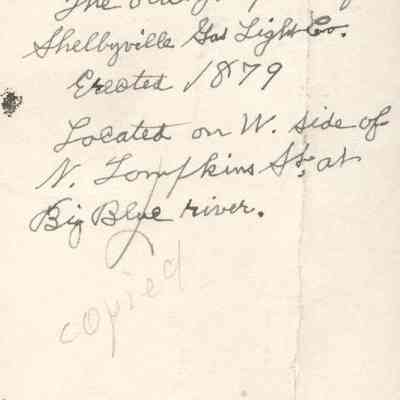 The
Shelbyville Gas Light Co.
Erected 1879
Located on W. side of
N. Tompkins St. at
Big Blue river.
copied